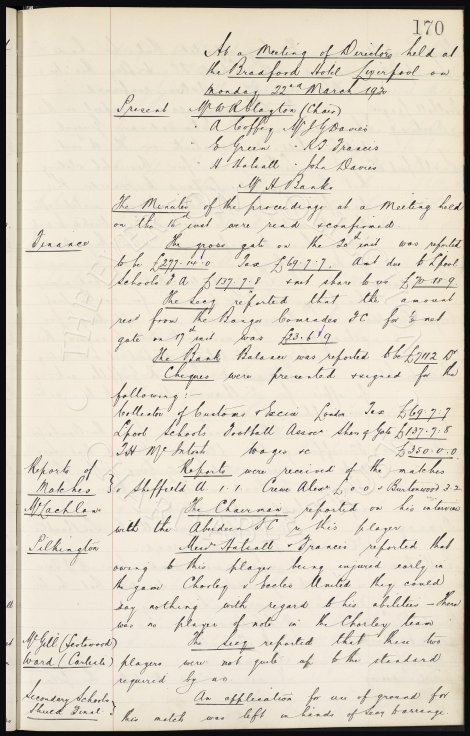 170
At a Meeting of Directors held at
the Bradford Hotel Liverpool on
Monday 22nd March 1920
Present Mr W R Clayton (Chair)
" A Coffey Mr J G Davies
" E Green " R T Francis
" H Halsall " John Davies
Mr H Banks
The Minutes of the proceedings at a Meeting held
on the 16th inst were read & confirmed
Finance The gross gate on the 20th inst was reported
to be £277.14.0 Tax £69.7.7. Amt due to Lpool
Schools F A £137.7.8 & nett share to us £70.18.9
The Secy reported that the amount
recd from the Bangor Comrades FC for ½ nett
gate on 17th inst was £23.6.9
The Bank Balance was reported to be £7112 Dr
Cheques were presented & signed for the
following :-
Collector of Customs & Excise London Tax £69.7.7
Lpool Schools Football Assoc Share of Gate £137.7.8
T H McIntosh Wages &c £350.0.0
Reports of Matches Reports were received of the matches
v Sheffield U 1.1. Crewe Alex 0.0 v Burtonwood 3.2
McLachlan The Chairman reported on his interview
with the Aberdeen F C re this player
Pilkington Messrs Halsall & Francis reported that
owing to this player being injured early in
the game Chorley v Eccles United they could
say nothing with regard to his abilities - There
was no player of note in the Chorley team
Mc Gill (Fleetwood) The Secy reported that these two
Ward (Carlisle) players were not quite up to the standard
required by us
Secondary Schools An application for use of ground for
Shield Final. this match was left in hands of Secy to arrange.